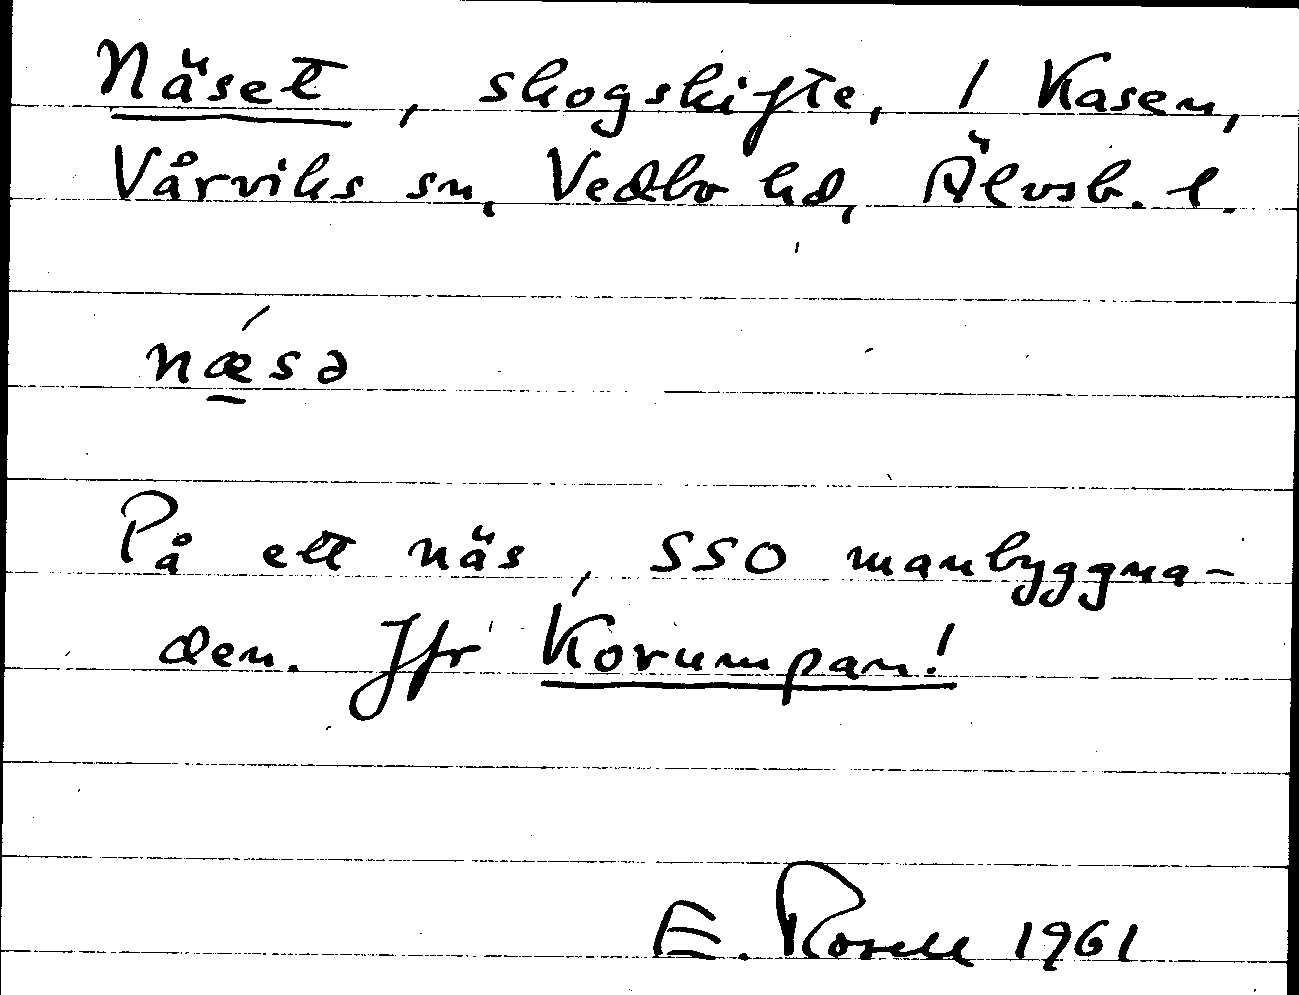 Näset, skogskifte, 1 Kasen,
Vårviks sn, Vedbo hd, Älvsb. l.
nǽ̲sə
På ett näs, SSO manbyggna-
den. Jfr Korumpan!
E. Rosell 1961